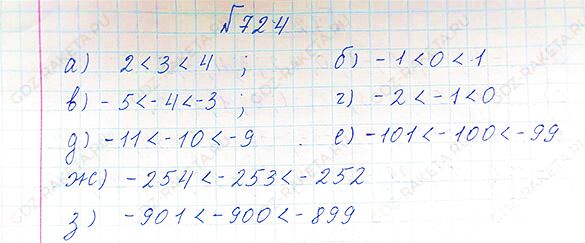 №724
а) 2 < 3 < 4 ; б) - 1 < 0 < 1
в) - 5 < - 4 < - 3 ; г) - 2 < - 1 < 0
д) - 11 < - 10 < - 9 . е) - 101 < - 100 < - 99
ж) - 254 < - 253 < - 252
з) - 901 < - 900 < - 899
GDZ-RAKETA.RU